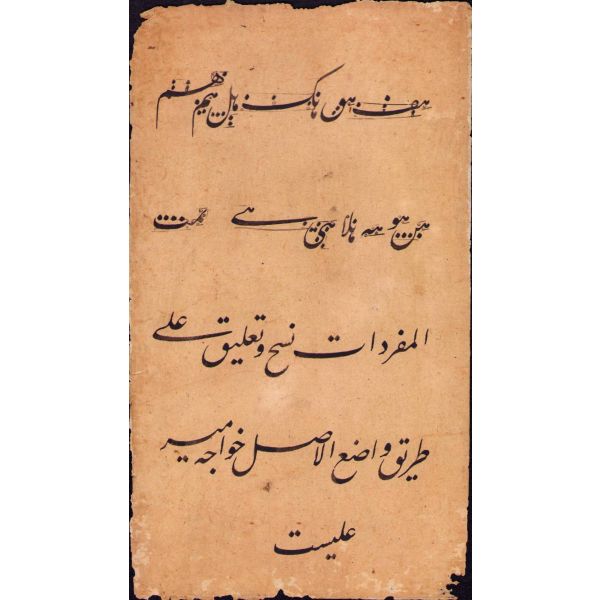 هف هق هک هل هم هم
هن هو هه هلا هی هے تمت
المفردات نسخ و تعلیق علے
طریق واضع الاصل خواجه میر
علیست